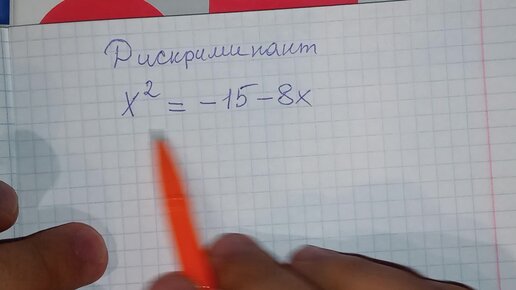 Дискриминант
x² = -15-8x